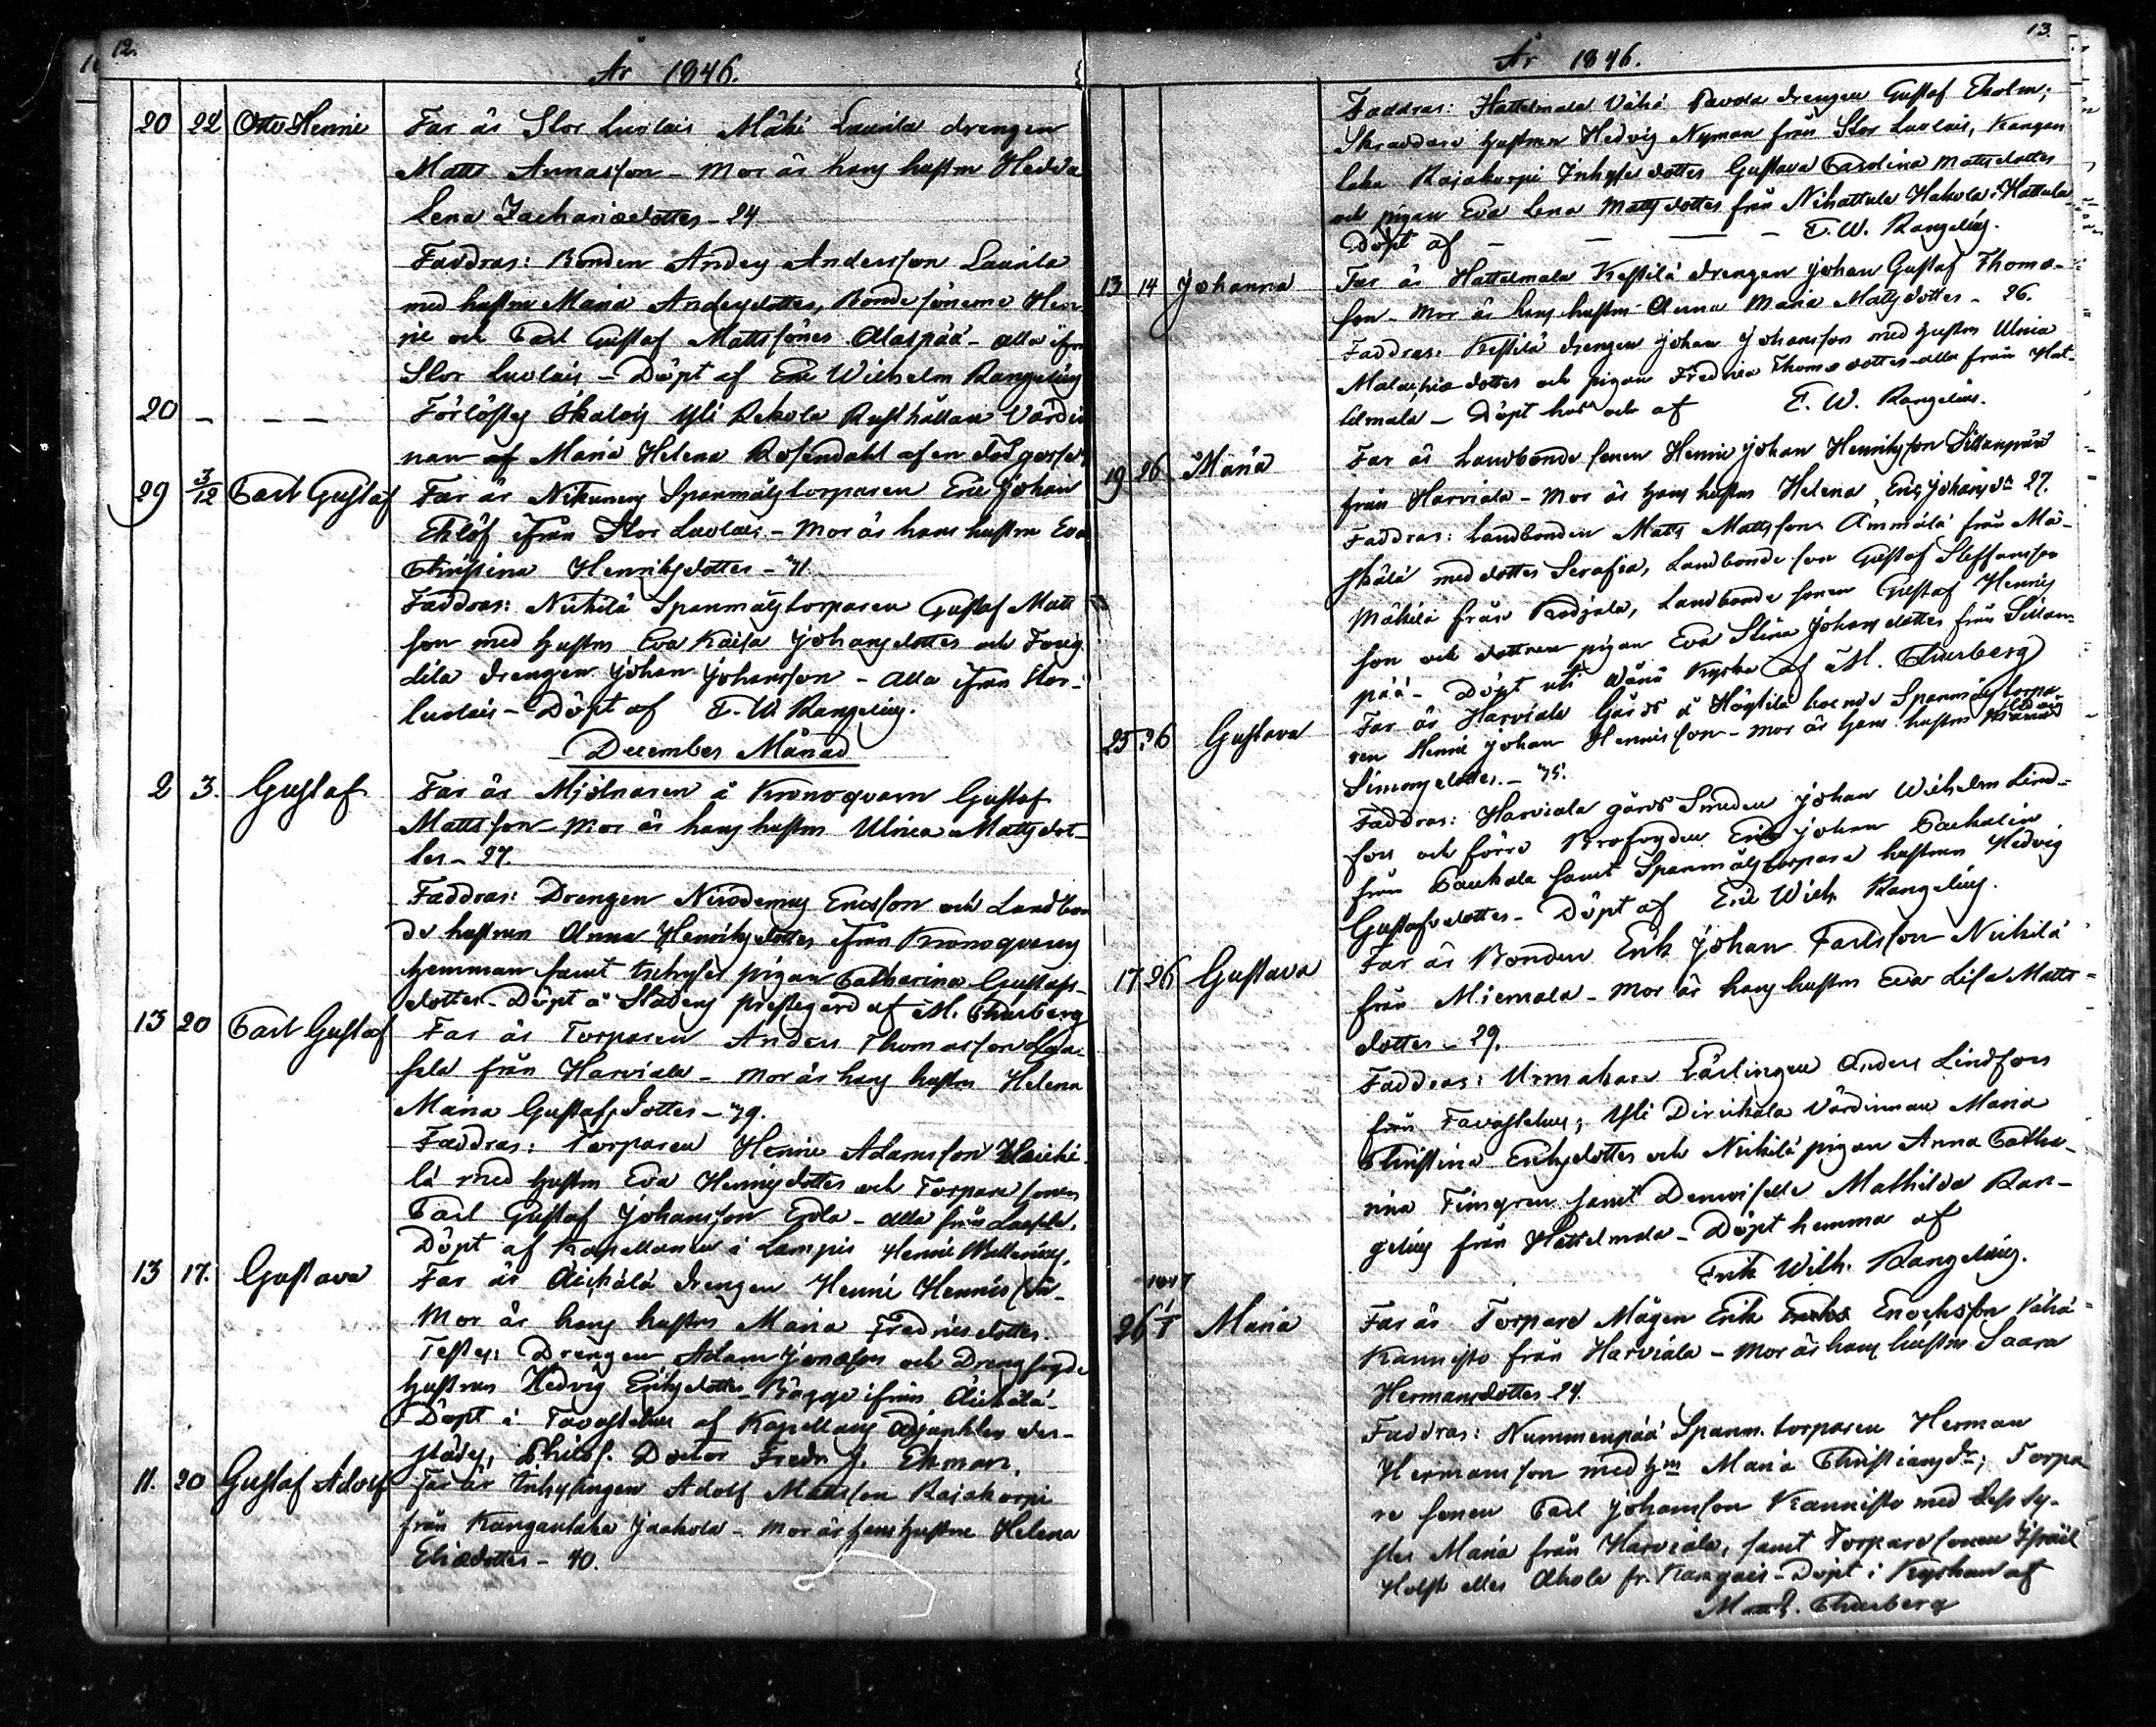 12.
År 1846.
20 22 Otto Henric Far är Stor Luolais Mäki Laurila drengen
Matts Annasson - Mor är hans hustru Hedda
Lena Zachariædotter - 24
Faddrar: Bonden Anders Andersson Laurila
med hustru Maria Andersdotter, Bondesönerne Hen-
ric och Carl Gustaf Mattssöner Alaspää - alla ifrån
Stor Luolais - Döpt af Eric Wilhelm Rangelius
20 - - - Förlöstes Skalois Yli Rekola Rusthållare Värdin
nan af Maria Helena Rosendahl af en död gosse
29 3/12 Carl Gustaf Far är Spanmålstorparen Eric Johan
Eklöf ifrån Stor Luolais - Mor är hans hustru Eva
Christina Henriksdotter - 41.
Faddrar: Nickilä Spanmålstorparen Gustaf Matt
son med hustru Eva Kaisa Johansdotter och
lila drengen Johan Johansson - alla ifrån Stor-
luolais - Döpt af E. W. Rangelius.
December Månad
2 3. Gustaf Far är Mjölnaren å Kronoqvarn Gustaf
Mattsson - Mor är hans hustru Ulrica Mattsdot-
ter - 27.
Faddrar: Drengen Nicodemus Ericsson och Landbon
de hustrun Anna Henriksdotter ifrån Kronoqvarns
hemman samt inhyses pigan Catharina Gustafs-
dotter - Döpt å Stadens prestegård af M. Thurberg
13 20 Carl Gustaf Far är Torparen Anders Thomasson Laa-
pela från Harviala - Mor är hans hustru Helena
Maria Gustafsdotter - 39.
Faddrar: Torparen Henric Adamsson Heicki-
lä med hustru Eva Henricsdotter och Torpare sonen
Carl Gustaf Johansson - alla från
Döpt af Kapellanen i Lampis Henric Wallenius.
13 17. Gustava Far är Äickälä drengen Henric Henricsson -
Mor är hans hustru Maria Fredricsdotter.
Testes: Drengen Adam Jonasson och Drengfogde
hustrun Hedvig Ericsdotter Bägge ifrån Äickälä -
Döpt i Tavastehus af Kapellans Adjunkten der-
städes, Philos. Doctor Fredr. J. Ekman.
11. 20 Gustaf Adolf Far är Inhysingen Adolf Mattsson Rajakorpi
från Kangaslaka Jaakola - Mor är hans hustru Helena
Eliædotter - 40.
13.
År 1846.
Faddrar: Hattelmala Vähä Pavola drengen Gustaf Ekolm;
Skräddare hustrun Hedvig Nyman från Stor Luolais, Kangas
laka Rajakorpi Inhyses dotter Gustava Carolina Mattsdotter
och pigan Eva Lena Mattsdotter från Nihattula Hakola i Hattula
Döpt af - - - - E. W. Rangelius.
13 14 Johanna Far är Hattelmala Kestilä drengen Johan Gustaf Thomæ-
son - Mor är hans hustru Anna Maria Mattsdotter - 26.
Faddrar: Kestilä drengen Johan Johansson med hustru Ulrica
Malachiædotter och pigan Fredrica Thomædotter - alla från Hat-
telmala - Döpt hos och af E. W. Rangelius.
19 26 Maria Far är Landbonde sonen Henric Johan Henricsson Sillanpää
från Harviala - Mor är hans hustru Helena Erics Johansdr 27.
Faddrar: Landbonden Matts Mattsson Ämmälä från Mä-
skälä med dotter Serafia, Landbonde son Gustaf Steffansson
Mäkilä från Rodjala, Landbonde sonen Gustaf Henrics
son och dottren pigan Eva Stina Johansdotter från Sillan-
pää - Döpt uti Wånå Kyrka af M. Thurberg
25 26 Gustava Far är Harviala Gårds å Högtila boende Spanmålstorpa-
ren Henric Johan Henricsson - Mor är hans hustru Hedvig
Simonsdotter. - 45.
Faddrar: Harviala gårds Smeden Johan Wilhelm Lind-
fors och förre Brofogden Eric Johan
från samt Spanmålstorpare hustrun Hedvig
Gustafsdotter - Döpt af Eric Wilh. Rangelius.
17 26 Gustava Far är Bonden Erik Johan Carlsson Nickilä
från Miemala - Mor är hans hustru Eva Lisa Matts-
dotter - 29.
Faddrar: Urmakare Lärlingen Anders Lindfors
från Tavastehus; Yli Dirickala Värdinnan Maria
Christina Ericsdotter och Nickilä pigan Anna Catha-
rina Fingren samt Demoiselle Mathilda Ran-
gelius från Hattelmala - Döpt hemma af
Erik Wilh. Rangelius.
1847
26 1/1 Maria Far är Torpare Mågen Erik Enochsson Vähä
Kannisto från Harviala - Mor är hans hustru Saara
Hermansdotter - 24.
Faddrar: Nummenpää Spanm. torparen Herman
Hermansson med hu Maria Christiansdr; Torpa-
re sonen Carl Johansson Kannisto med dess sy-
ster Maria från Harviala, samt Torpare sonen Israel
Holst eller Ahola fr. Kangais - Döpt i Kyrkan af
M. Thurberg